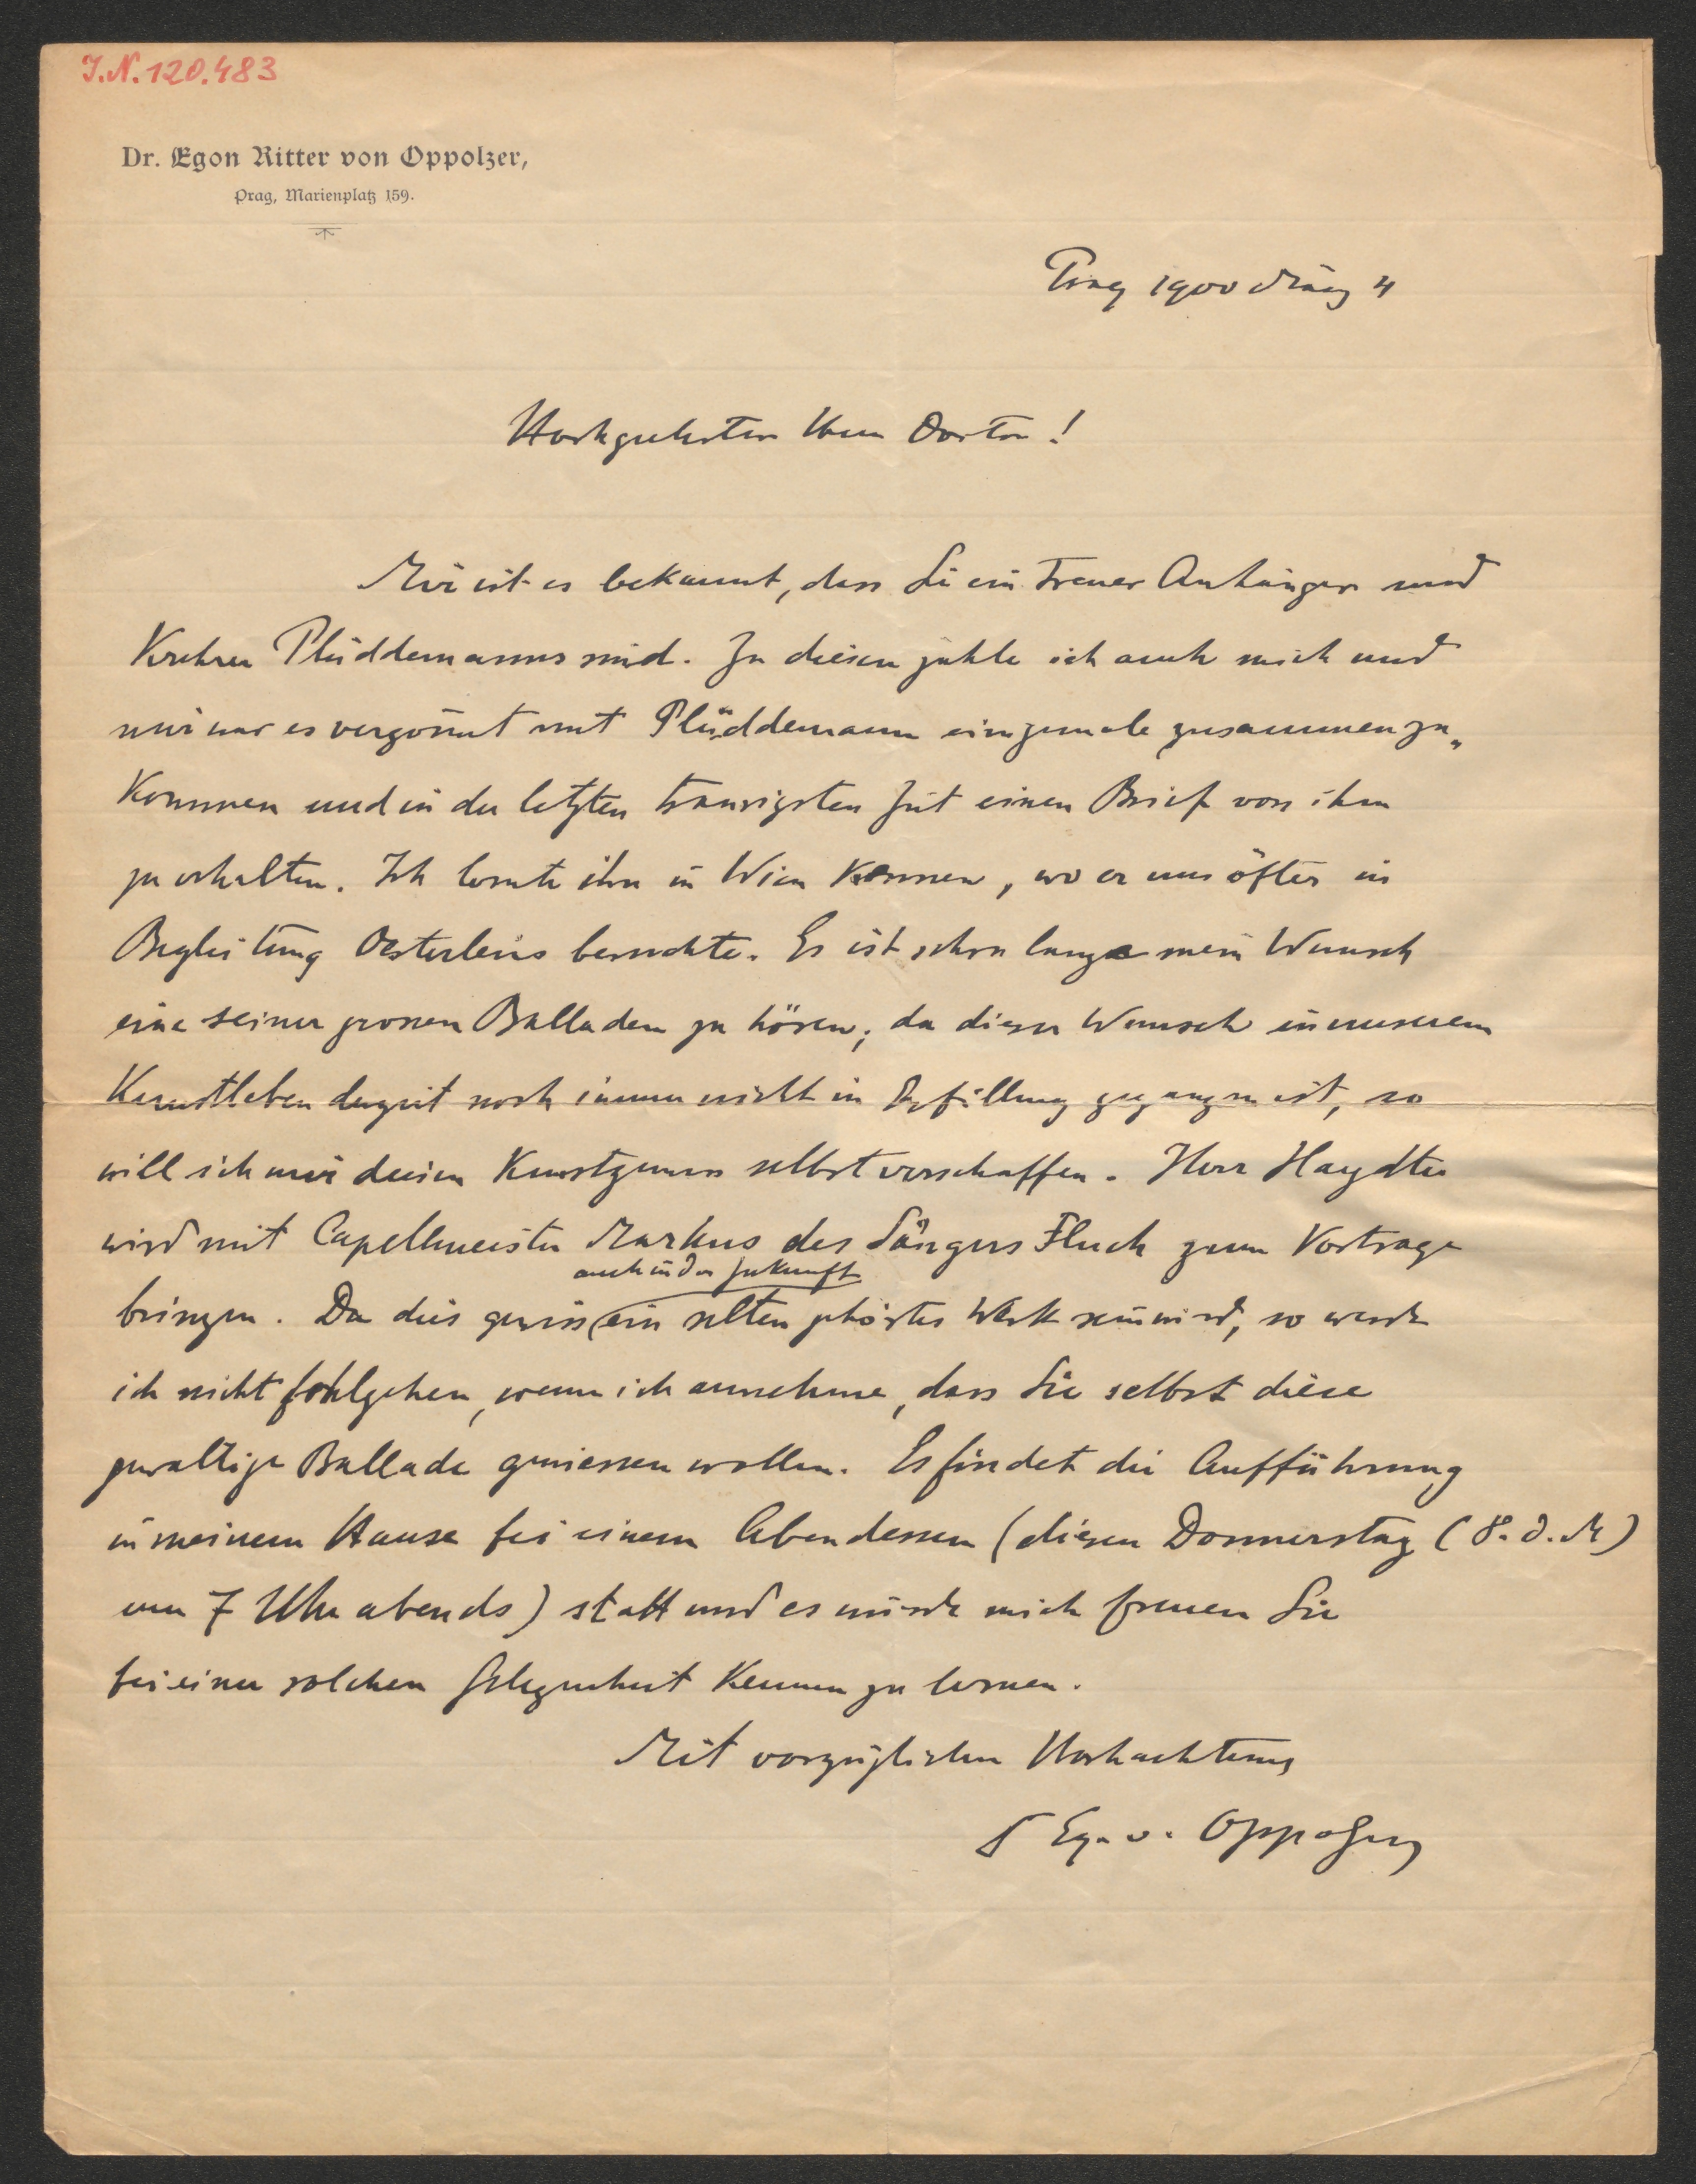 I.N. 120.483
Dr. Egon Ritter von Oppolzer,
Prag, Marienplatz 159.
Prag 1900 März 4
Hochgeehrter Herr Doctor!
Mir ist es bekannt, dass Sie ein treuer Anhänger und
Verehrer Plüddemanns sind. Zu diesen zähle ich auch mich und
mir war es vergönnt mit Plüddemann einigemale zusammenzu„
kommen und in der letzten traurigsten Zeit einen Brief von ihm
zu erhalten. Ich lernte ihn in Wien kennen, wo er uns öfter in
Begleitung Oesterleins besuchte. Es ist schon lange mein Wunsch
eine seiner grossen Balladen zu hören; da dieser Wunsch in unserem
Kunstleben derzeit noch immer nicht in Erfüllung gegangen ist, so
will ich mir diesen Kunstgenuss selbst verschaffen. Herr Haydter
wird mit Capellmeister Markus des Sängers Fluch zum Vortrage
auch in der Zukunft
bringen. Da dies gewiss ein selten gehörtes Werk sein wird, so werde
ich nicht fehlgehen, wenn ich annehme, dass Sie selbst diese
gewaltige Ballade geniessen wollen. Es findet die Aufführung
in meinem Hause bei einem Abendessen (diesen Donnerstag (8. d. M)
um 7 Uhr abends) statt und es würde mich freuen Sie
bei einer solchen Gelegenheit kennen zu lernen.
Mit vorzüglicher Hochachtung
Eg. v. Oppolzer